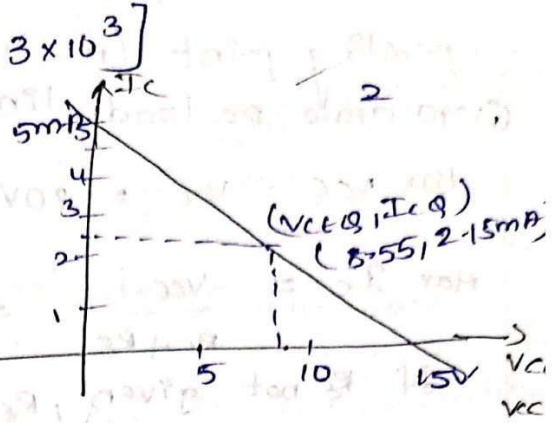 3 × 10³]
IC
2
5mA
5
4
3
(VCEQ, ICQ)
(8.55, 2.15mA)
2
1
5
10
15V
VC
VCC